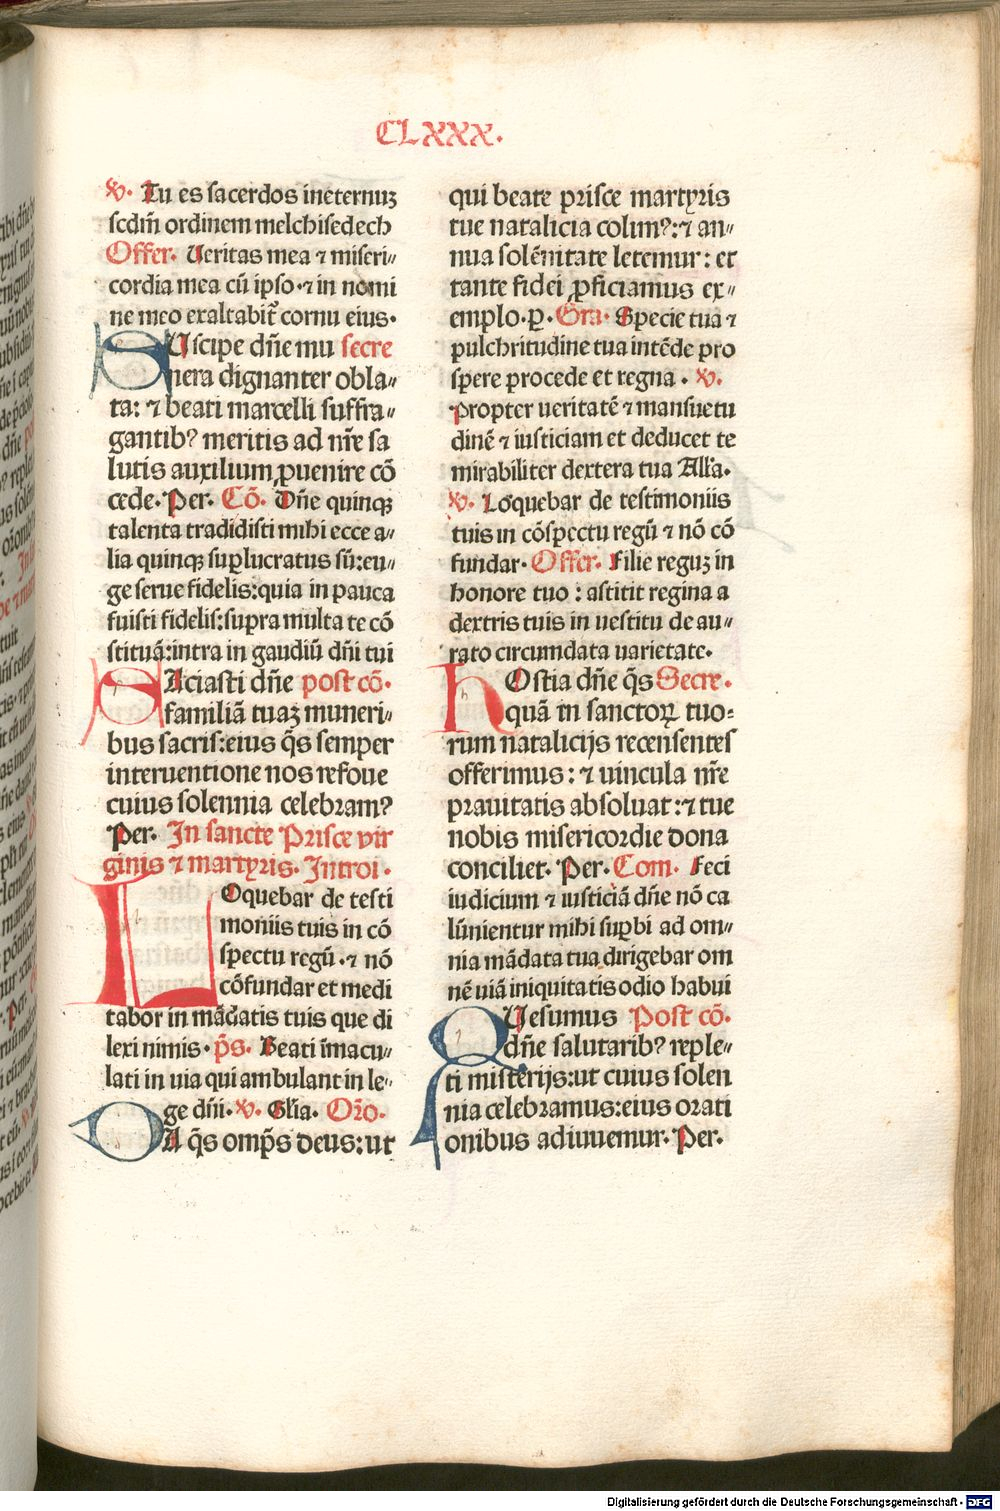 CLXXX.
V. Tu es sacerdos ineternuꝫ
scdm̄ ordinem melchisedech
Offer. Ueritas mea ⁊ miseri〃
cordia mea cū ipso·⁊ in nomi
ne meo exaltabit̄ cornu eius·
SUscipe dn̄e mu secre
nera dignanter obla〃
ta: ⁊ beati marcelli suffra〃
gantib? meritis ad nr̄e sa
lutis auxilium ꝓuenire cō
cede. Per. Cō. Dn̄e quinqꝫ
talenta tradidisti mihi ecce a〃
lia quinqꝫ suꝑlucratus sū:eu〃
ge serue fidelis:quia in pauca
fuisti fidelis:supra multa te cō
stituā:intra in gaudiū dn̄i tui
SAciasti dn̄e post cō.
familiā tuaꝫ muneri〃
bus sacris:eius q̄s semper
interuentione nos refoue
cuius solennia celebram?
Per. In sancte Prisce vir
ginis ⁊ martyris. Introi.
LOquebar de testi
moniis tuis in cō
spectu regū.⁊ nō
cōfundar et medi
tabor in mādatis tuis que di
lexi nimis. p̄s. Beati īmacu〃
lati in uia qui ambulant in le〃
ge dn̄i. V. Glīa. Orō.
DA q̄s omp̄s deus:ut
qui beate prisce martyris
tue natalicia colim?:⁊ an〃
nua solēnitate letemur: et
tante fidei ꝓficiamus ex〃
emplo.p̱. Gra. Specie tua ⁊
pulchritudine tua intēde pro
spere procede et regna. V.
Propter ueritatē ⁊ mansuetu
dinē ⁊ iusticiam et deducet te
mirabiliter dextera tua Allīa.
V. Loquebar de testimoniis
tuis in cōspectu regū ⁊ nō cō
fundar. Offer. Filie reguꝫ in
honore tuo : astitit regina a
dextris tuis in uestitu de au〃
rato circumdata uarietate.
HOstia dn̄e q̄s Secre.
quā in sanctoꝝ tuo〃
rum natalicijs recensentes
offerimus: ⁊ uincula nr̄e
prauitatis absoluat:⁊ tue
nobis misericordie dona
conciliet. Per. Com. Feci
iudicium ⁊ iusticiā dn̄e nō ca
lūnientur mihi suꝑbi ad om〃
nia mādata tua dirigebar om
nē uiā iniquitatis odio habui
QUesumus Post cō.
dn̄e salutarib? reple〃
ti misterijs:ut cuius solen
nia celebramus:eius orati
onibus adiuuemur. Per.
Digitalisierung gefördert durch die Deutsche Forschungsgemeinschaft - DFG